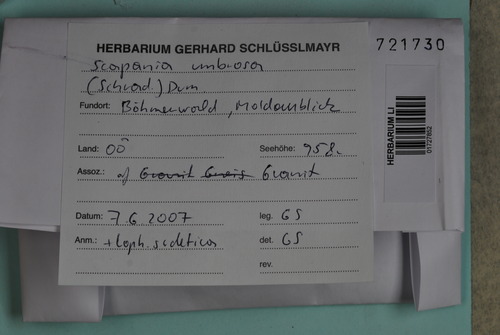 HERBARIUM GERHARD SCHLÜSSLMAYR
721730
Scapania umbrosa
(Schrad.) Dum
Fundort: Böhmerwald, Moldaublick
Land: OÖ
Seehöhe: 958
Assoz.: af Granit Gneis Granit
Datum: 7.6.2007
leg. GS
Anm.: + Loph. sudetica
det. GS
rev.
HERBARIUM LI
01727852